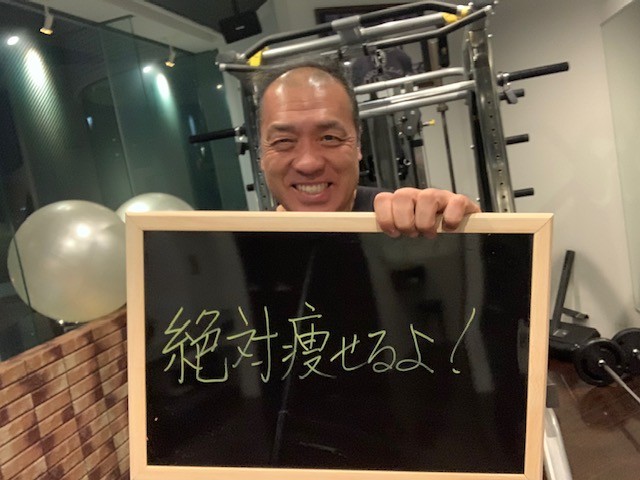 絶対痩せるよ!